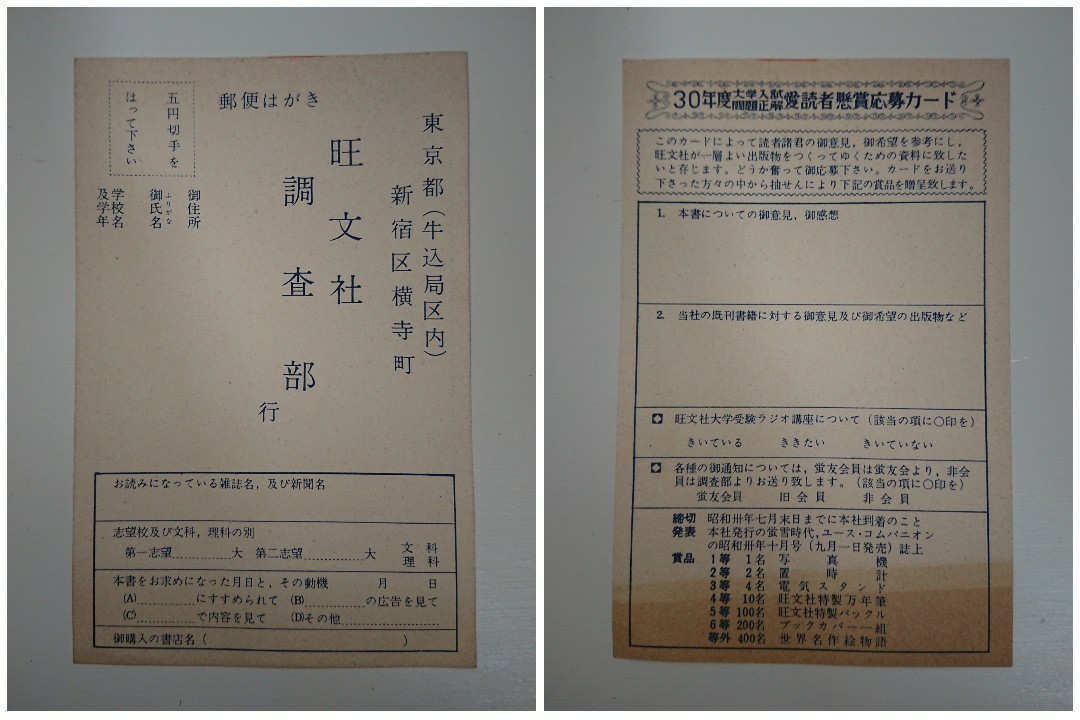 郵便はがき
五円切手を
はって下さい
東京都(牛込局区内)
新宿区横寺町
旺文社
調査部
行
御住所
ふりがな
御氏名
学校名
及学年
お読みになっている雑誌名,及び新聞名
志望校及び文科,理科の別
第一志望............大 第二志望............大 文科
理科
本書をお求めになった月日と,その動機 月 日
(A)............にすすめられて (B)............の広告を見て
(C)............で内容を見て (D)その他............
御購入の書店名( )
30年度大学入試問題正解愛読者懸賞応募カード
このカードによって読者諸君の御意見,御希望を参考にし,
旺文社が一層よい出版物をつくってゆくための資料に致した
いと存じます。どうか奮って御応募下さい。カードをお送り
下さった方々の中から抽せんにより下記の賞品を贈呈致します。
1. 本書についての御意見,御感想
2. 当社の既刊書籍に対する御意見及び御希望の出版物など
旺文社大学受験ラジオ講座について(該当の項に○印を)
きいている ききたい きいていない
各種の御通知については,蛍友会員は蛍友会より,非会
員は調査部よりお送り致します。(該当の項に○印を)
蛍友会員 旧会員 非会員
締切 昭和卅年七月末日までに本社到着のこと
発表 本社発行の蛍雪時代,ユース・コムパニオン
の昭和卅年十月号(九月一日発売)誌上
賞品 1等 1名 写真機
2等 2名 置時計
3等 4名 電気スタンド
4等 10名 旺文社特製万年筆
5等 100名 旺文社特製バックル
6等 200名 ブックカバー一組
等外 400名 世界名作絵物語